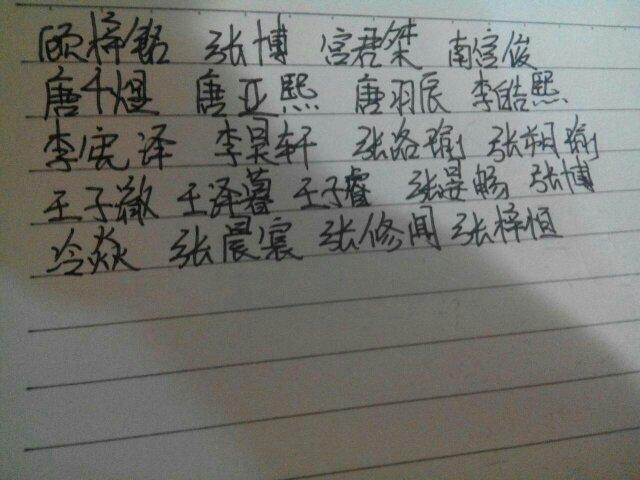 顾梓铭 张博 宫君桀 南宫俊
唐千煜 唐亚熙 唐羽辰 李皓熙
李宸泽 李昊轩 张洛瑜 张朔瑜
王子徽 王泽暮 王子睿 张昙畅 张博
冷焱 张晨寰 张修闻 张梓恒